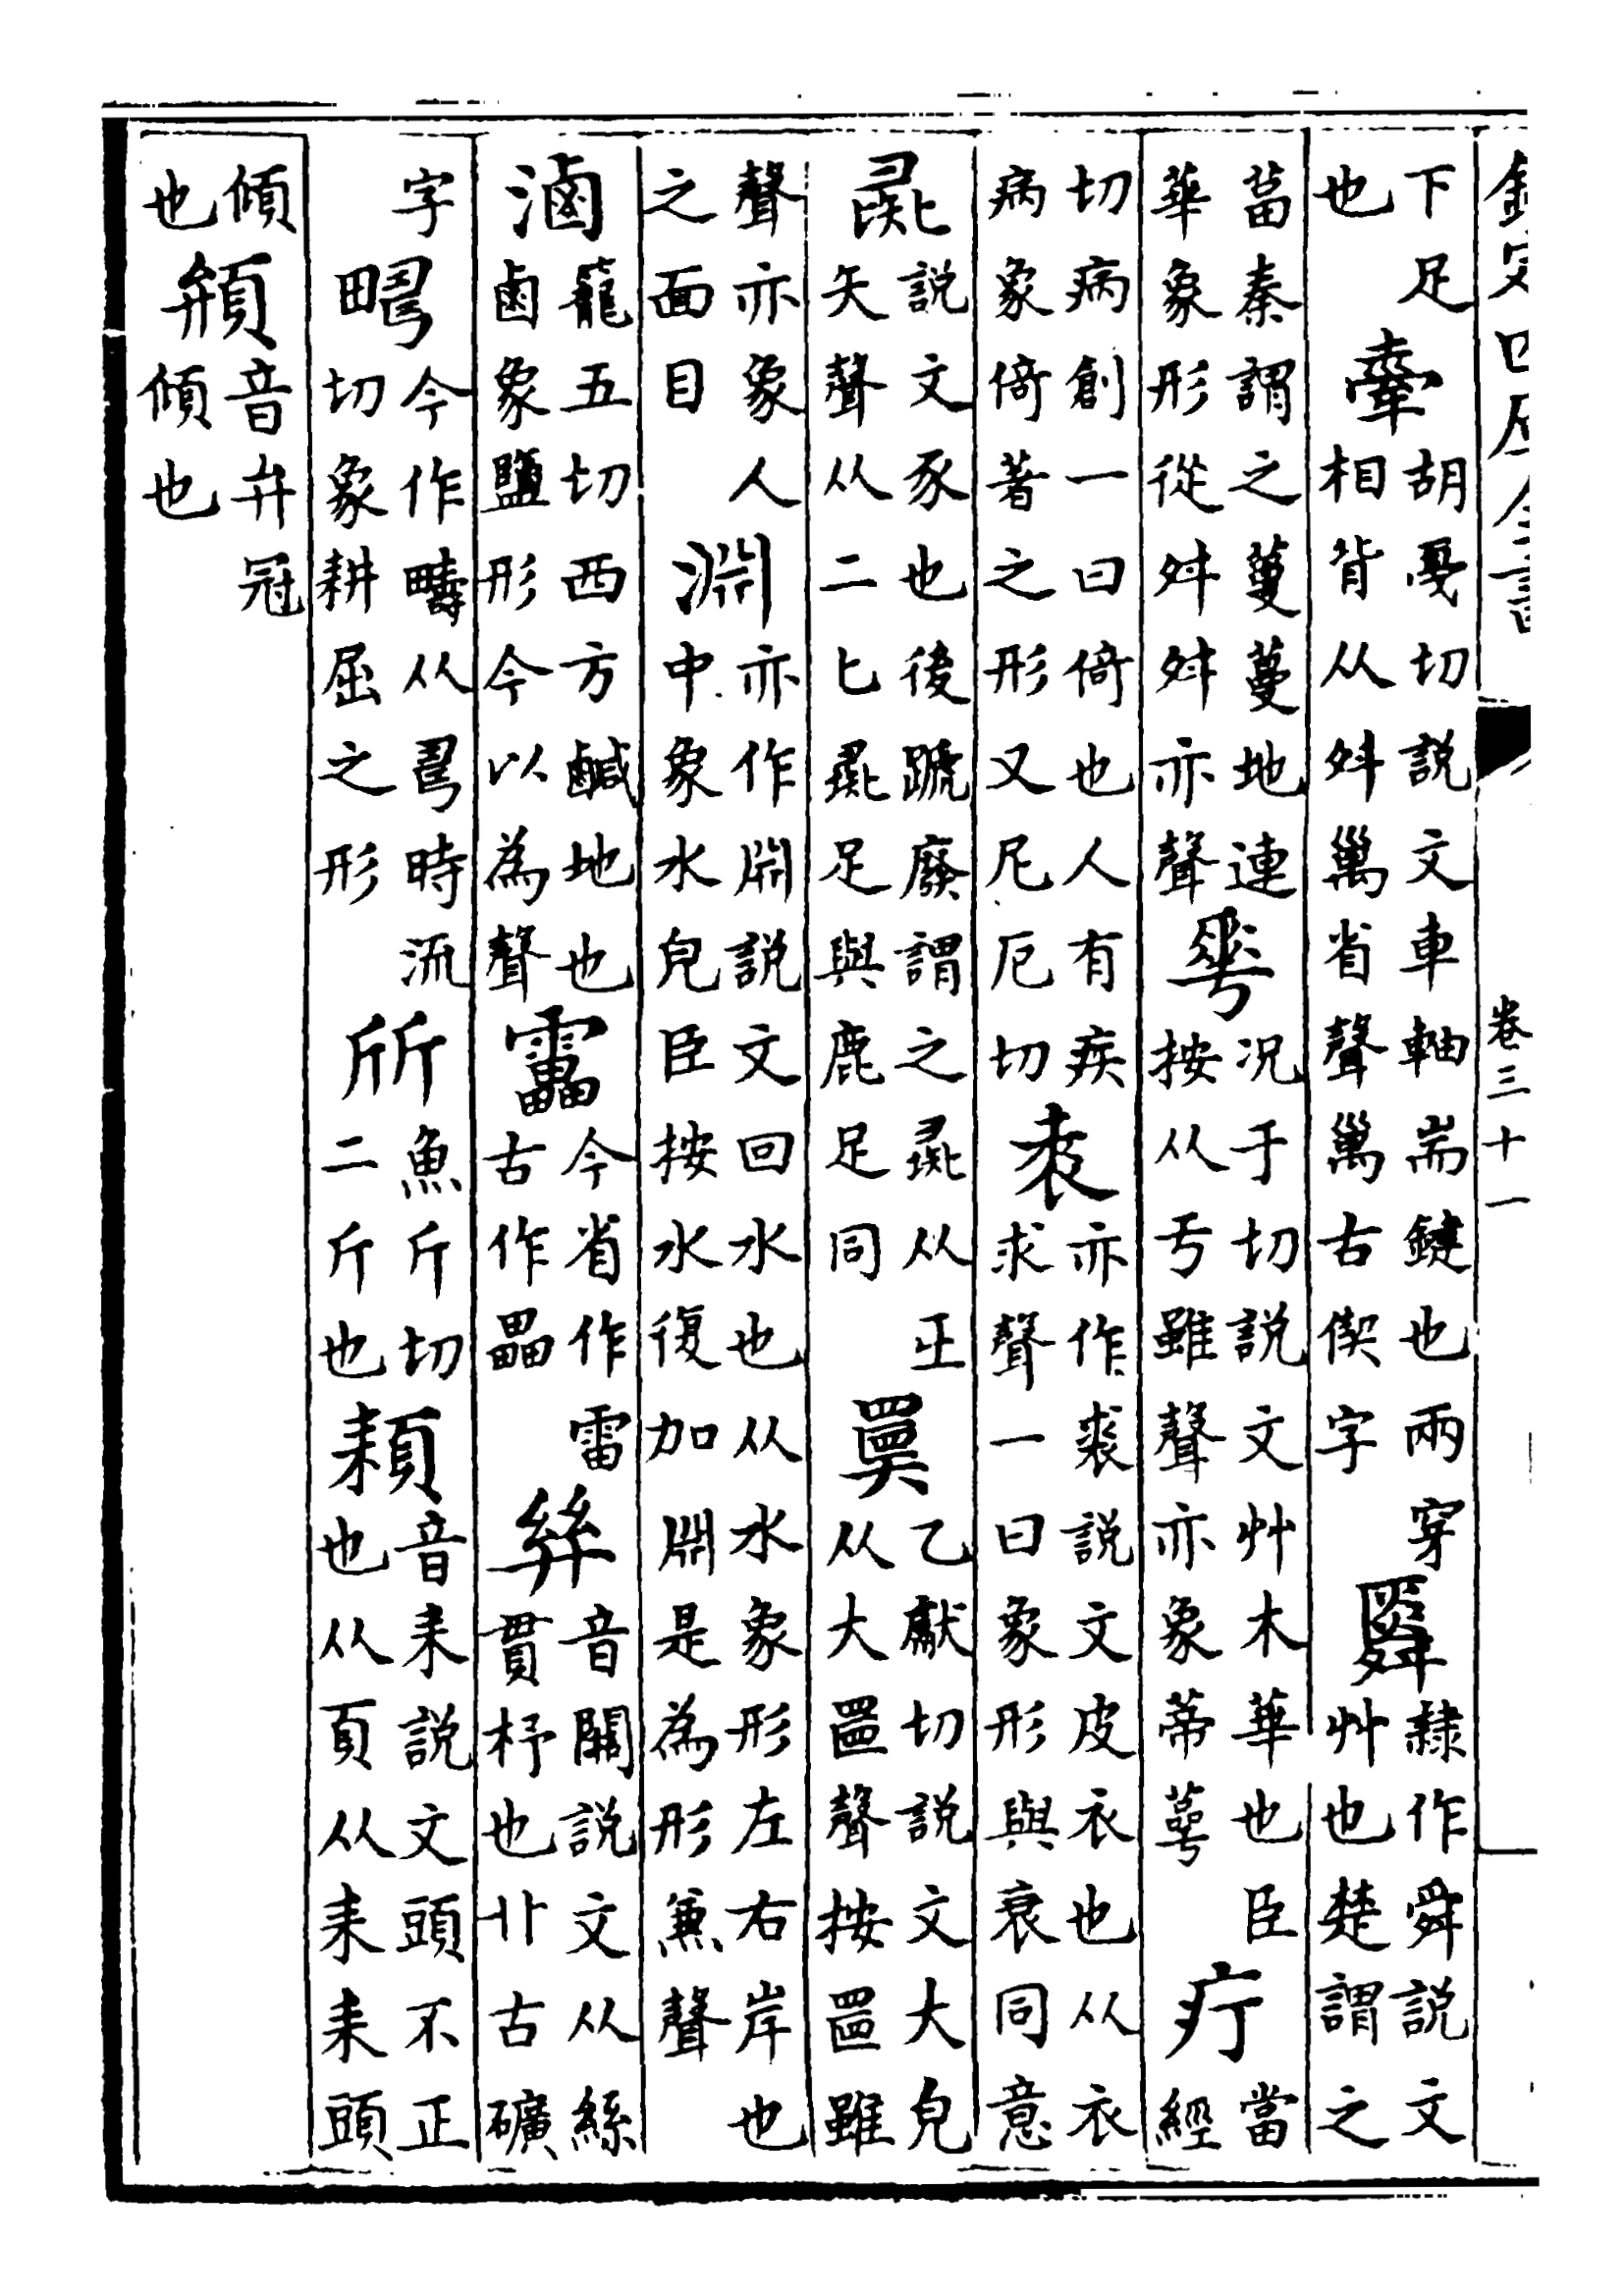 欽定四庫全書 卷三十一
下足也 舝 胡戞切説文車軸耑鍵也兩穿相背从舛𥜿省聲𥜿古偰字 䑞 隷作舜説文艸也楚謂之
葍秦謂之藑蔓地連華象形從舛舛亦聲 𠌶 况于切説文艸木華也臣按从亏雖聲亦象蒂萼 疒 當經
切病創一曰倚也人有疾病象倚著之形又尼厄切 裘 亦作裘説文皮衣也从衣求聲一曰象形與衰同意
彘 説文豕也後蹏廢謂之彘从彑矢聲从二匕彘足與鹿足同 𡚤 乙獻切説文大皃从大𥄎聲按𥄎雖
聲亦象人之面目 淵 亦作𣶒説文回水也从水象形左右岸也中象水皃臣按水復加𣶒是為形兼聲
滷 籠五切西方鹹地也鹵象鹽形今以為聲 靁 今省作雷古作畾 𢇇 音關説文从絲貫杼也丱古礦
字 𤲮 今作疇从𠷎時流切象耕屈之形 斦 魚斤切二斤也 頛 音耒説文頭不正也从頁从耒耒頭
傾也 頩 音弁冠傾也